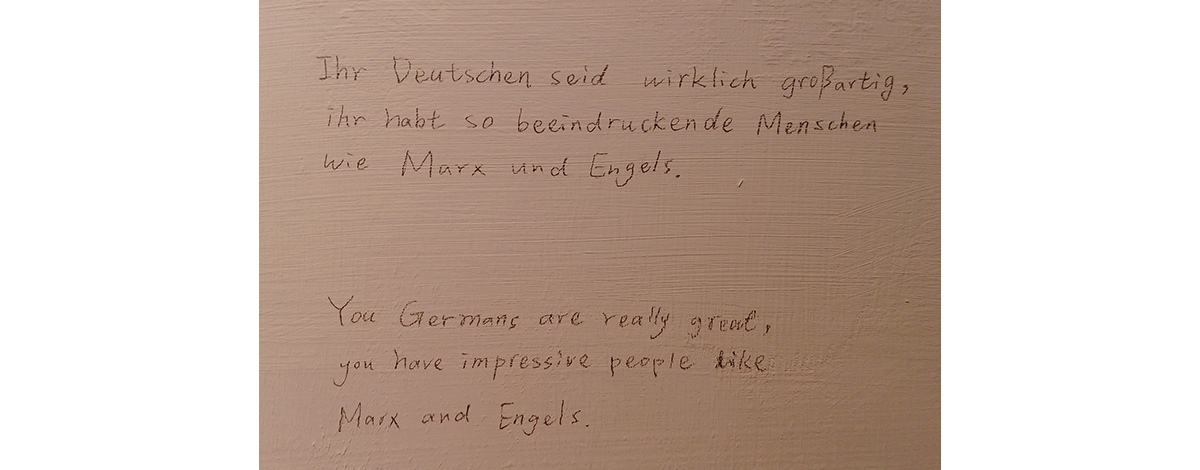 Ihr Deutschen seid wirklich großartig,
ihr habt so beeindruckende Menschen
wie Marx und Engels.
You Germans are really great,
you have impressive people like
Marx and Engels.